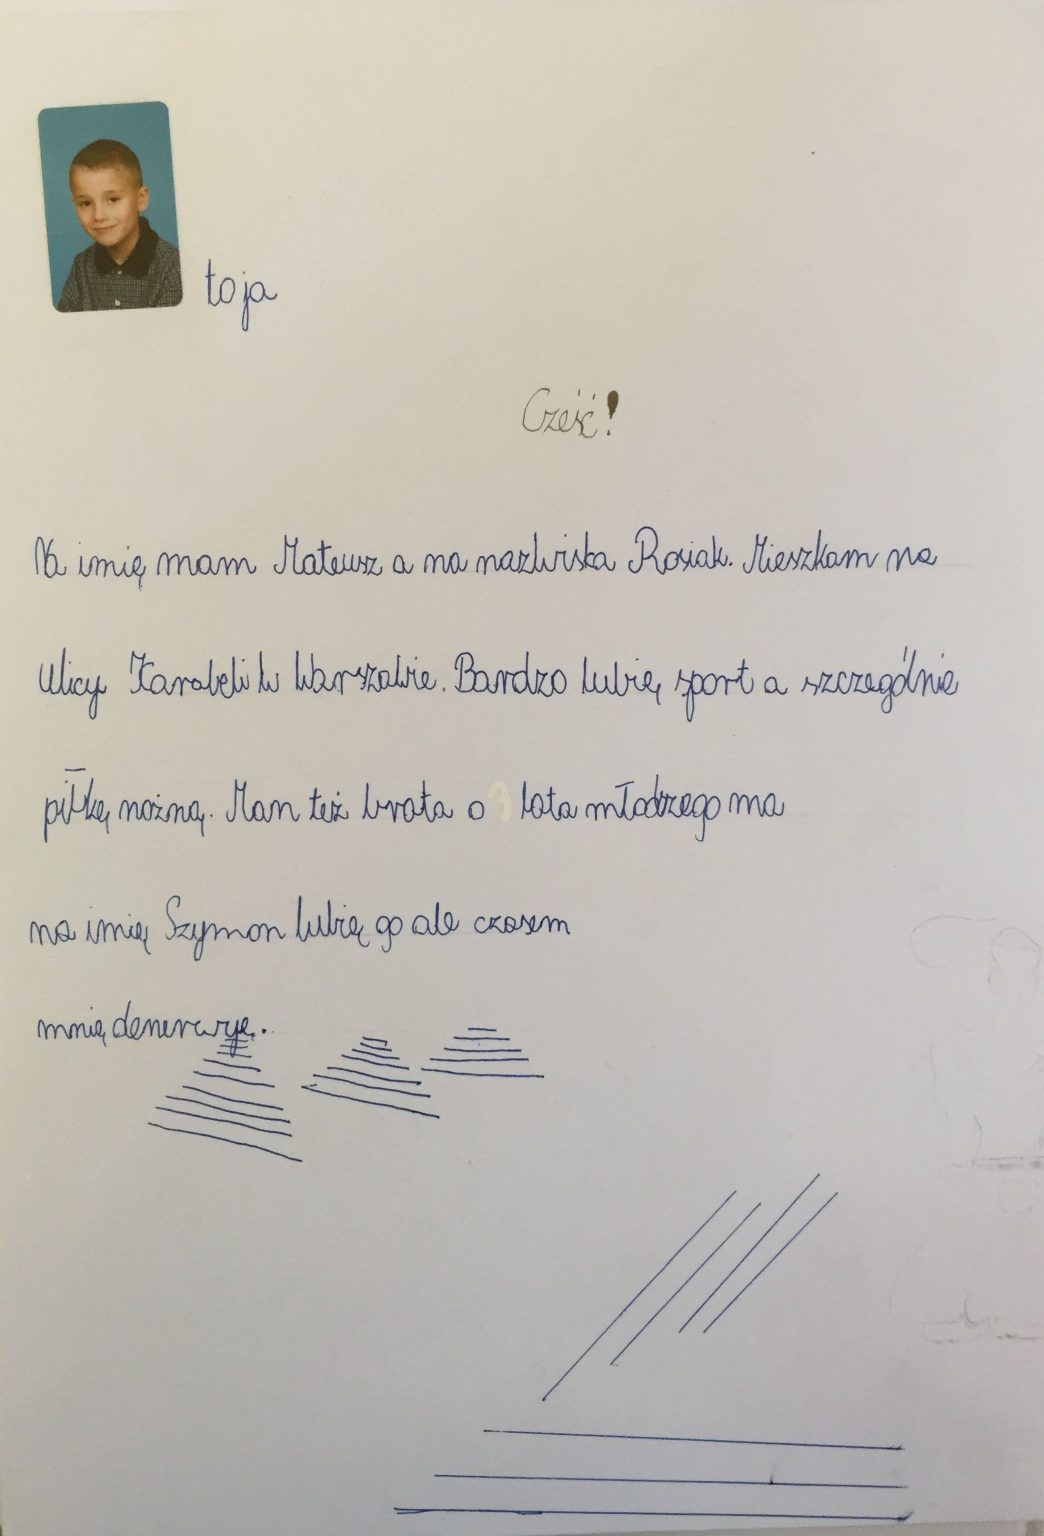 to ja
Cześć!
Na imię mam Mateusz a na nazwiska Rosiak. Mieszkam na
ulicy Karabeli w Warszawie. Bardzo lubię sport a szczególnie
piłkę nożną. Mam też brata o lata młodzego ma
na imię Szymon lubię go ale czasem
mnię denerwuje.